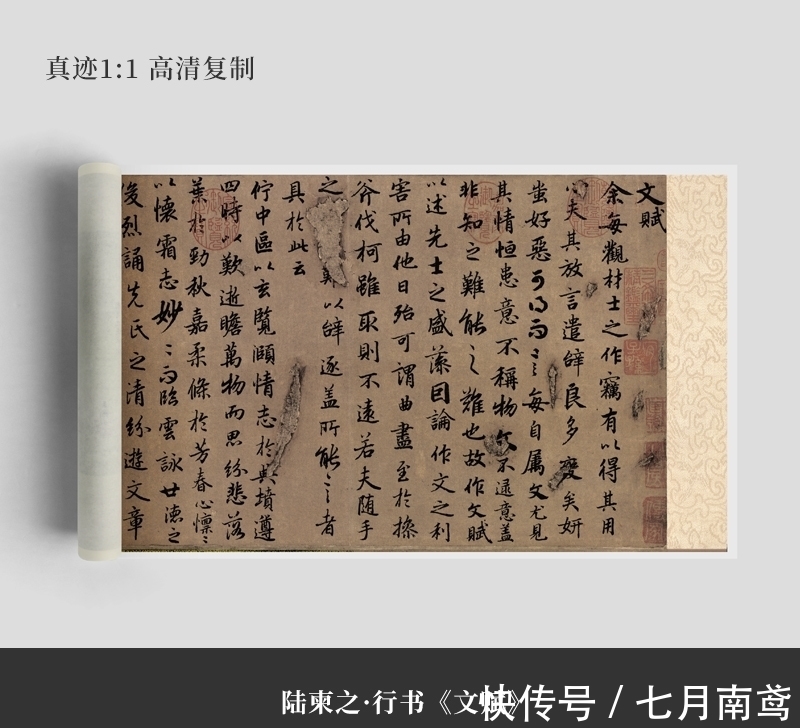 真迹1:1 高清复制
文賦
余每觀材士之作竊有以得其用
心夫其放言遣辤良多變矣妍
蚩好惡可得而言每自属文尤見
其情恒患意不稱物文不逮意蓋
非知之難能之難也故作文賦
以述先士之盛藻因論作文之利
害所由他日殆可謂曲盡至於操
斧伐柯雖取則不遠若夫随手
之難以辤逐蓋所能言者
具於此云
佇中區以玄覽頤情志於典墳遵
四時以歎逝瞻萬物而思紛悲落
葉於勁秋嘉柔條於芳春心懍〻
以懷霜志妙〻而臨雲詠世德之
俊烈誦先民之清紛遊文章
陆柬之·行书《文赋》
快传号 / 七月南鸢